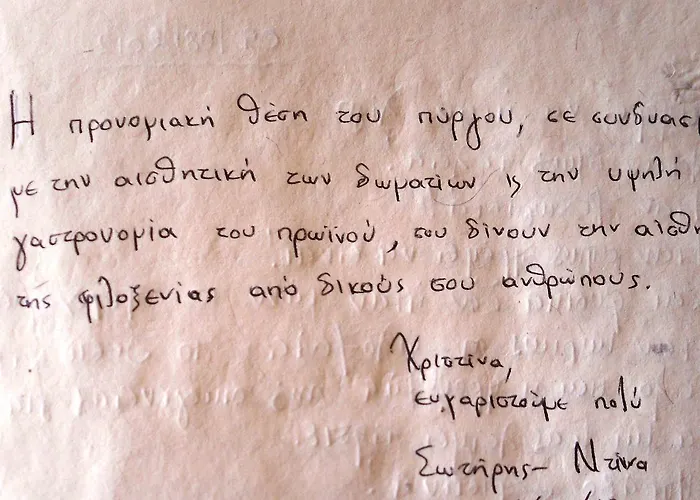 Η προνομιακή θέση του πύργου, σε συνδυασμ
με την αισθητική των δωματίων ϗ την υψηλή
γαστρονομία του πρωϊνού, σου δίνουν την αίσθη
της φιλοξενίας από δικούς σου ανθρώπους.
Χριστίνα,
ευχαριστούμε πολύ
Σωτήρης - Ντίνα